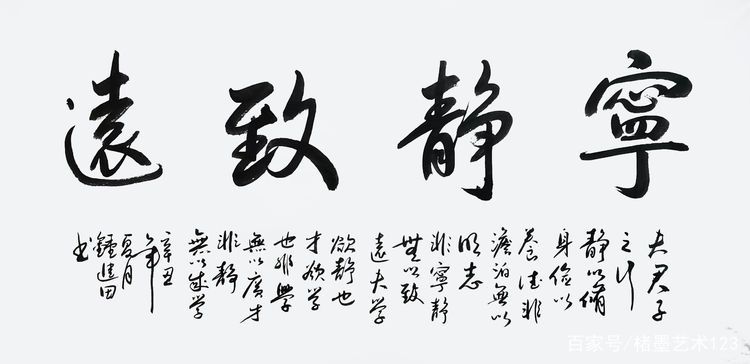 寧靜致遠
夫君子
之行
静以脩
身儉以
養德非
澹泊無以
明志
非寧静
無以致
遠夫学
欲静也
才欲学
也非學
無以廣才
非静
無以成学
辛丑
年
夏月
鍾進田
书
百家号/楮墨艺术123